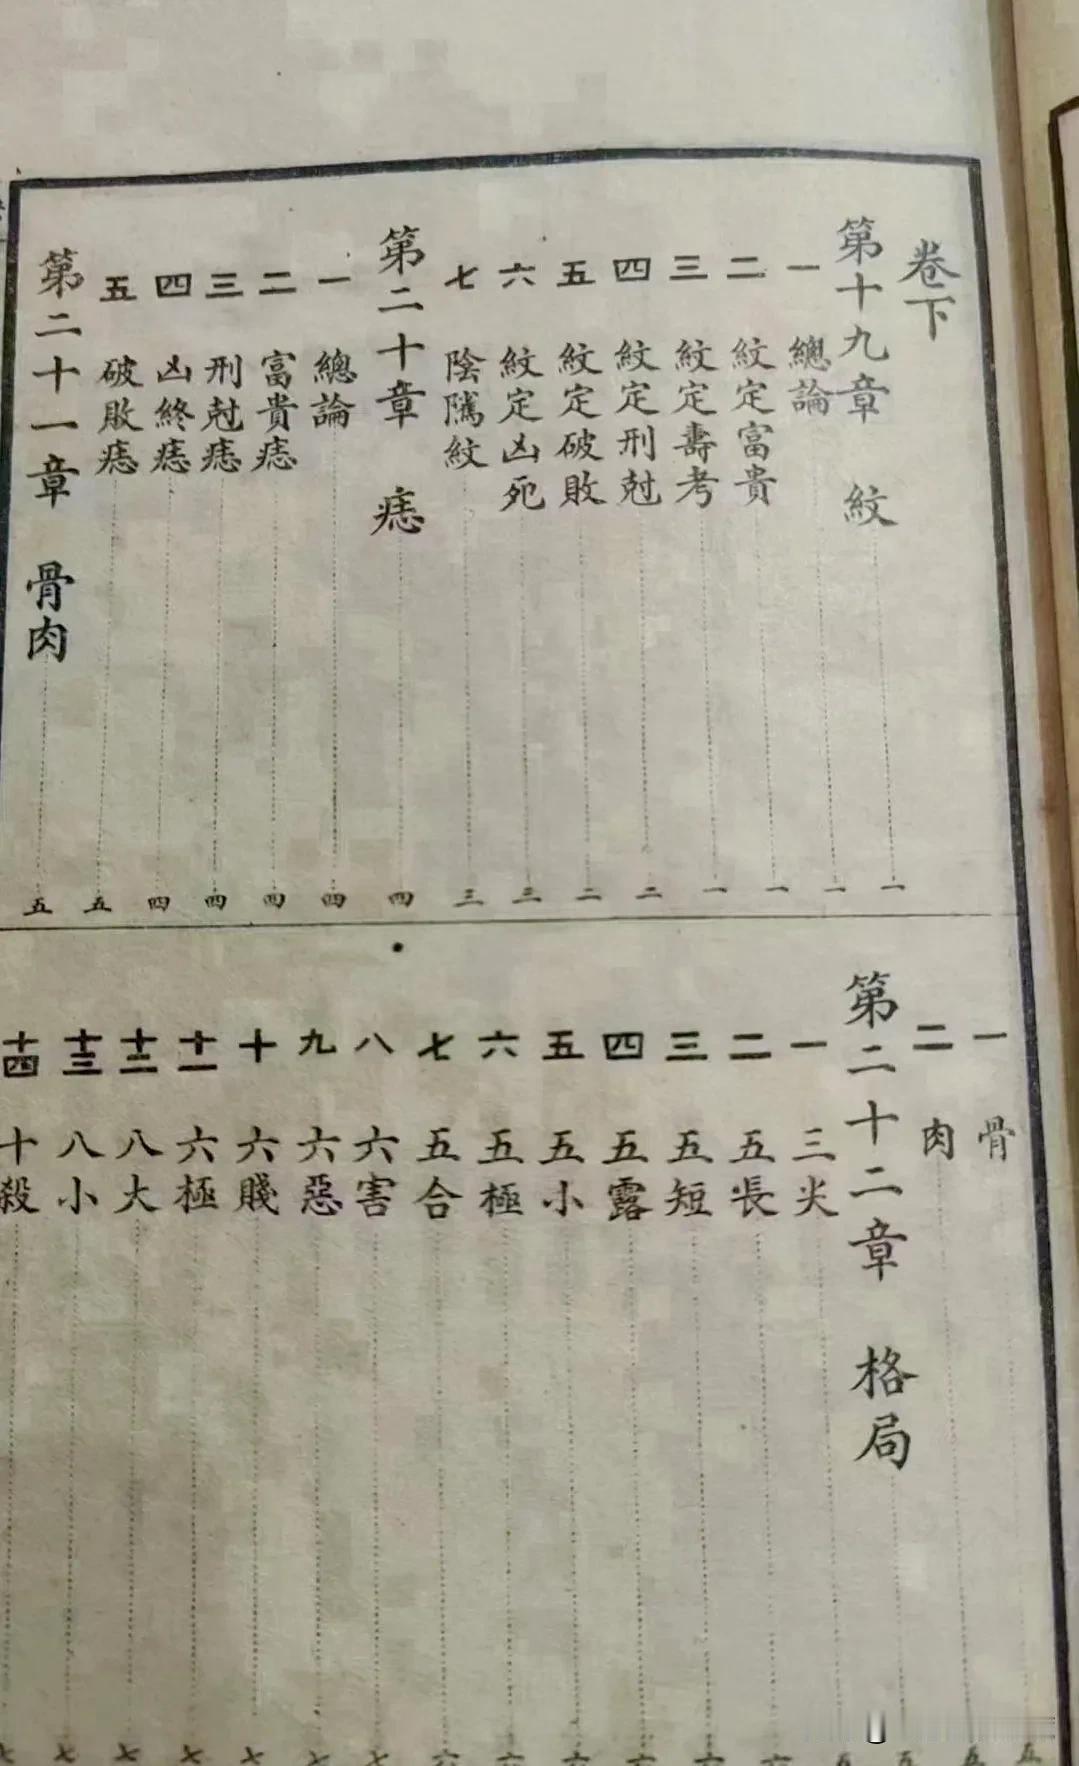 卷下
第十九章 紋 一
一 總論 一
二 紋定富貴 一
三 紋定壽考 一
四 紋定刑尅 二
五 紋定破敗 二
六 紋定凶死 三
七 陰隲紋 三
第二十章 痣 四
一 總論 四
二 富貴痣 四
三 刑尅痣 四
四 凶終痣 四
五 破敗痣 五
第二十一章 骨肉 五
一 骨 五
二 肉 五
第二十二章 格局 五
一 三尖 五
二 五長 六
三 五短 六
四 五露 六
五 五小 六
六 五極 六
七 五合 六
八 六害 七
九 六惡 七
十 六賤 七
十一 六極 七
十二 八大 七
十三 八小 七
十四 十殺 七